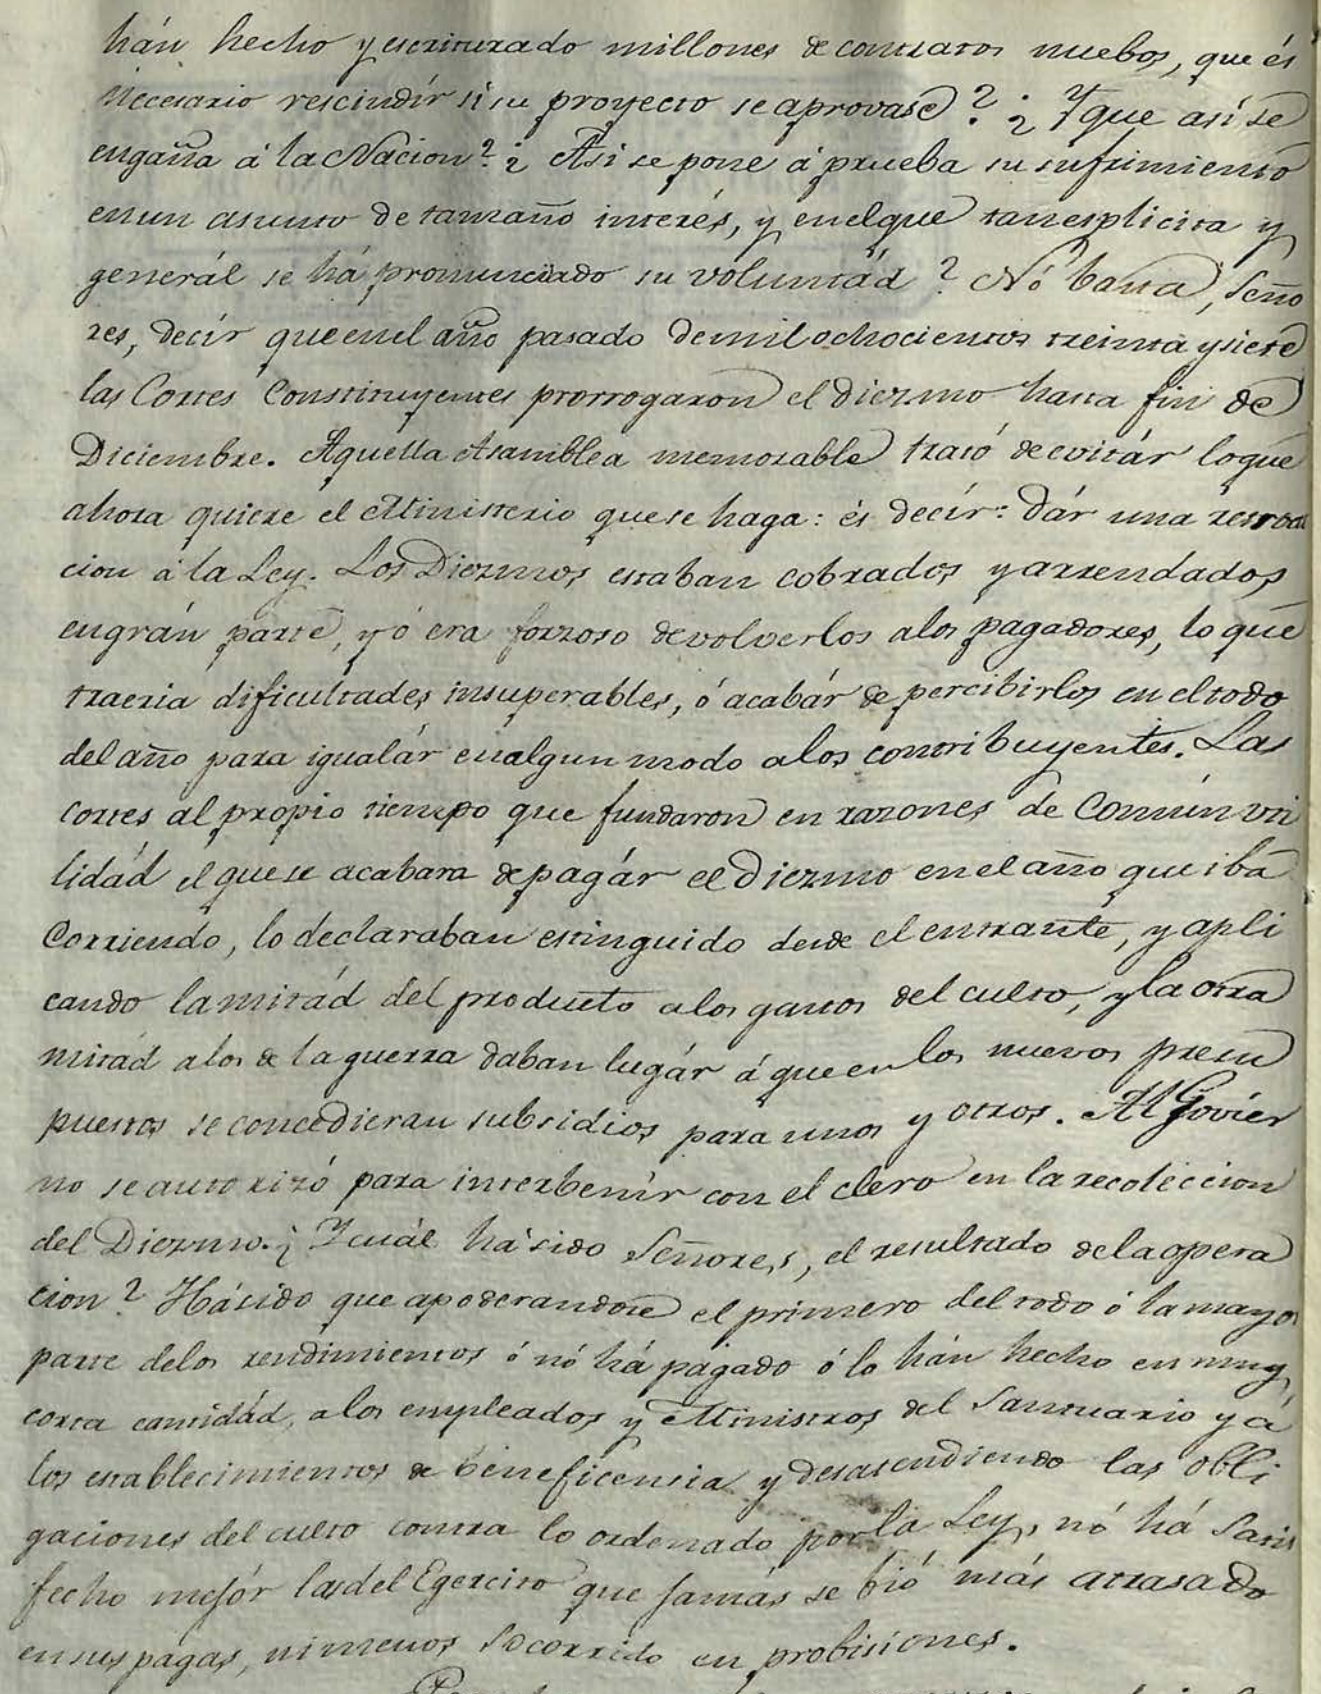 hán hecho y escriturado millones de contratos nuebos, que és
necesario rescindír si su proyecto se aprovase? ¿Y que así se
engaña á la Nacion? ¿Asi se pone á prueba su sufrimiento
en un asunto de tamaño interés, y en el que tan esplicita y
generál se há pronunciado su voluntád? Nó basta, Seño
res, decír que en el año pasado de mil ochocientos treinta y siete
las Cortes Constituyentes prorrogaron el Diezmo hasta fin de
Diciembre. Aquella Asamblea memorable trató de evitár lo que
ahora quiere el Ministerio que se haga: és decír: dár una retroac
cion á la Ley. Los Diezmos estaban cobrados y arrendados
en grán parte, y ó era forzoso devolverlos a los pagadores, lo que
traeria dificultades insuperables, ó acabár de percibirlos en el todo
del año para igualár en algun modo a los contribuyentes. Las
Cortes al propio tiempo que fundaron en razones de Común uti
lidád el que se acabara de pagár el Diezmo en el año que iba
Corriendo, lo declaraban estinguido desde el entrante, y apli
cando la mitád del producto a los gastos del culto, y la otra
mitád a los de la guerra daban lugár á que en los nuevos presu
puestos se concedieran subsidios para unos y otros. Al Goviér
no se autorizó para interbenír con el clero en la recoleccion
del Diezmo. ¿Y cuál há sido Señores, el resultado de la opera
cion? Há sido que apoderandose el primero del todo ó la mayor
parte de los rendimientos ó nó há pagado ó lo hán hecho en muy
corta cantidád, a los empleados y Ministros del Santuario y á
los establecimientos de beneficencia y desatendiendo las obli
gaciones del culto contra lo ordenado por la Ley, nó há Satis
fecho mejór las del Egercito que jamás se bió más atrasado
en sus pagas, ni menos Socorrido en probisiones.